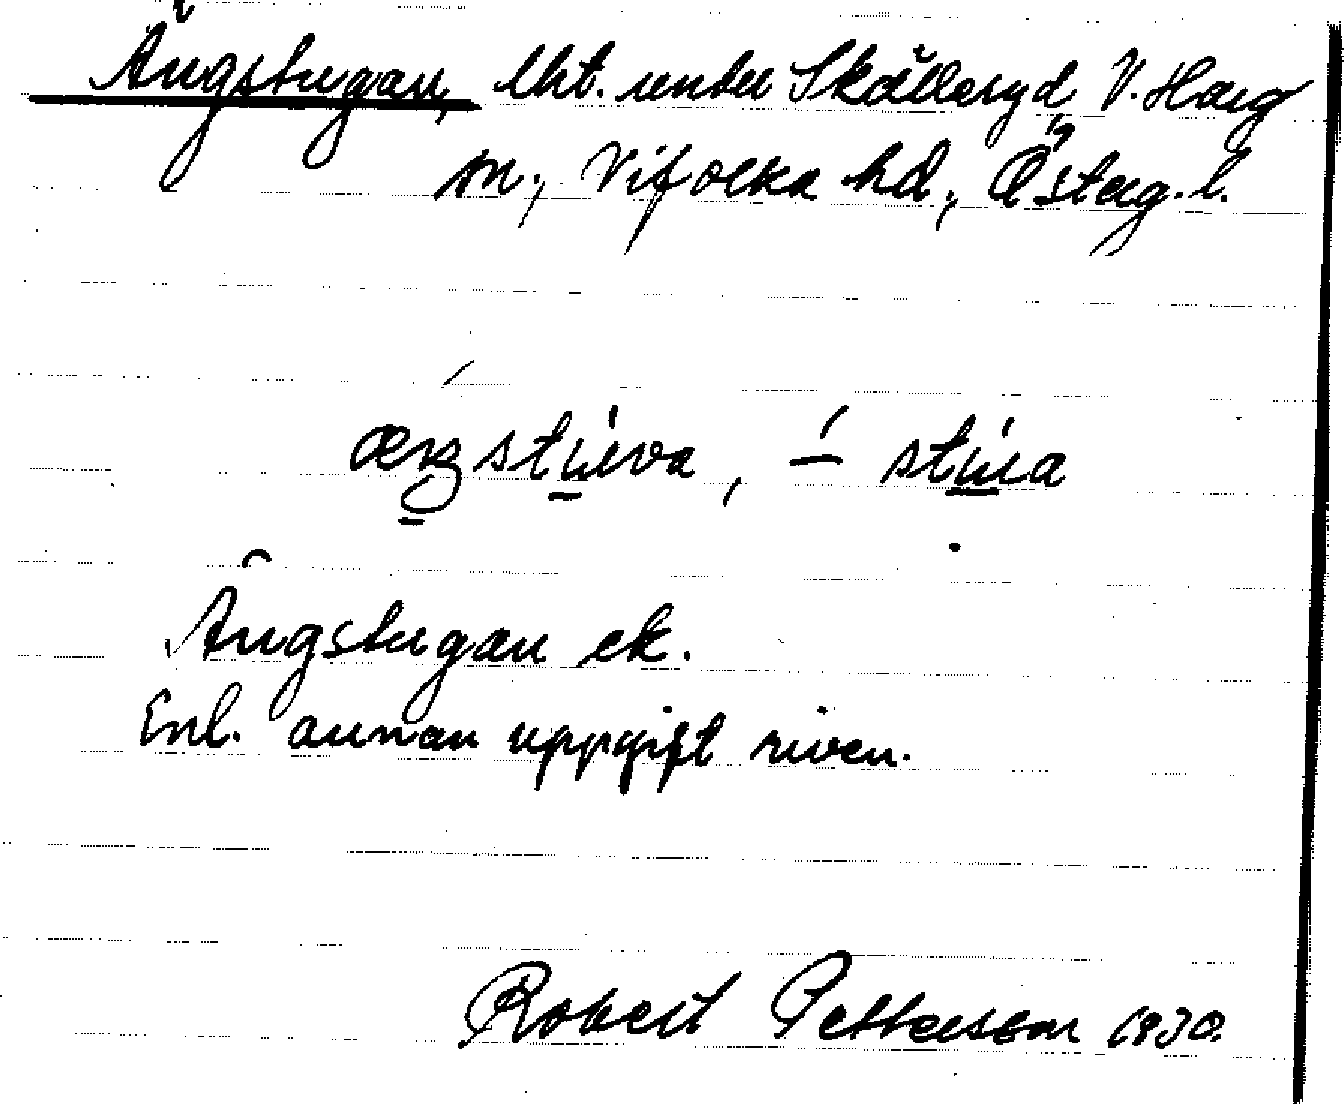 Ängstugan, lht. under Skålleryd, V. Harg
sn., Vifolka hd, Österg. l.
æŋstu̱va, – stu̱a
Ängstugan ek.
Enl. annan uppgift riven.
Robert Pettersson 1930.